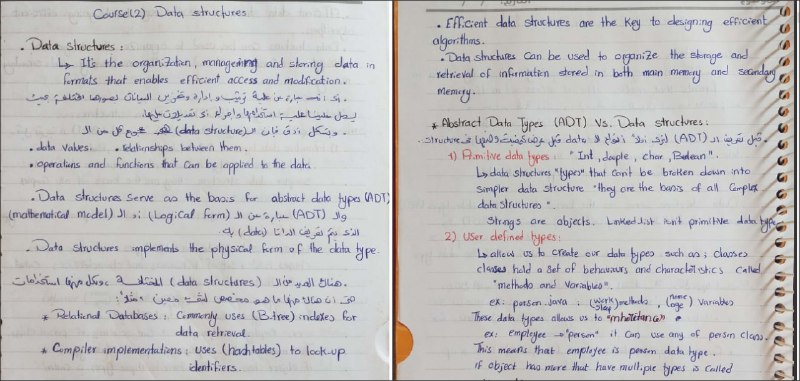 Course(2) Data structures
. Data structures :
↳ It's the organization, managening and storing data in
formats that enables efficient access and modification.
وبشكل أدق فإن الـ (data structure) هو مجموع كل من الـ
. data values. . relationships between them.
. operations and functions that can be applied to the data.
. Data structures serve as the basis for abstract data types (ADT)
والـ (ADT) عبارة عن الـ (Logical form) أو الـ (mathematical model)
الذي يتم تعريف الداتا (data) به
. Data structures implements the physical form of the data type.
. هناك العديد من الـ (data structures) المختلفة، ولكل منها استخدامات
* Relational Databases : Commonly uses (B-tree) indexes for
data retrieval.
* Compiler implementations : uses (hashtables) to look-up
identifiers.
. Efficient data structures are the key to designing efficient
algorithms.
. Data structures can be used to organize the storage and
retrieval of information stored in both main memory and secondary
memory.
* Abstract Data Types (ADT) Vs. Data structures :
قبل تعريف الـ (ADT) لنرى أولاً أنواع الـ data
1) Primitive data types : "Int, douple, char, Boolean".
↳ data structures "types" that can't be broken down into
simpler data structure "they are the basis of all Complex
data structures".
Strings are objects. Linked list isn't primitive data type
2) User defined types :
↳ allow us to create our data types such as ; classes
classes hold a set of behaviours and characteristics called
"methods and Variables".
ex: person.java : (work, sleep) methods, (name, age) Variables
These data types allows us to "inheritance"
ex: employee → "person" it can use any of person class.
This means that employee is person data type.
if object has more that have multiple types is called